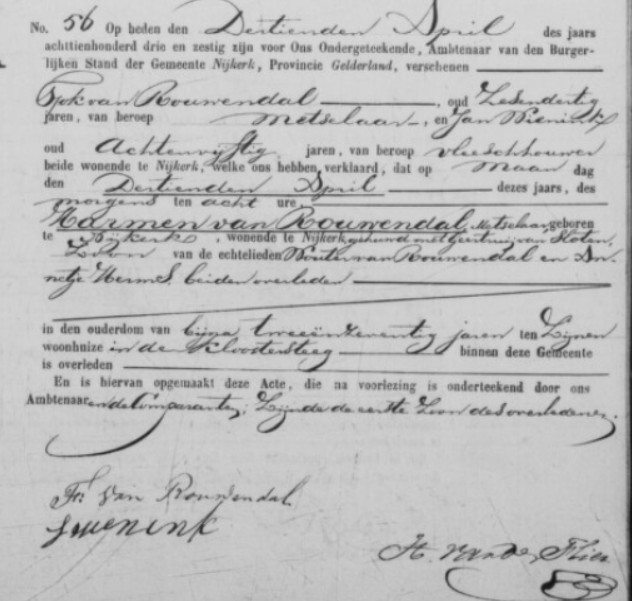 No. 56 Op heden den Dertienden April des jaars
achttienhonderd drie en zestig zijn voor Ons Ondergeteekende, Ambtenaar van den Burger-
lijken Stand der Gemeente Nijkerk, Provincie Gelderland, verschenen
van Rouwendal, oud Zesendertig
jaren, van beroep Metselaar, en Jan
oud Achtenvijftig jaren, van beroep vleeschhouwer
beide wonende te Nijkerk, welke ons hebben verklaard, dat op Maan dag
den Dertienden April dezes jaars, des
morgens ten acht ure,
Harmen van Rouwendal, Metselaar geboren
te Nijkerk, wonende te Nijkerk, gehuwd met Geertrui van Sloten,
Zoon van de echtelieden Wouter van Rouwendal en An-
netje Harms, beiden overleden
in den ouderdom van bijna tweeënzeventig jaren ten Zijnen
woonhuize in de Kloostersteeg binnen deze Gemeente
is overleden
En is hiervan opgemaakt deze Acte, die na voorlezing is onderteekend door ons
Ambtenaar en de Comparanten, Zijnde de eerste Zoon des overledenen.
van Rouwendal
H. van der Flier